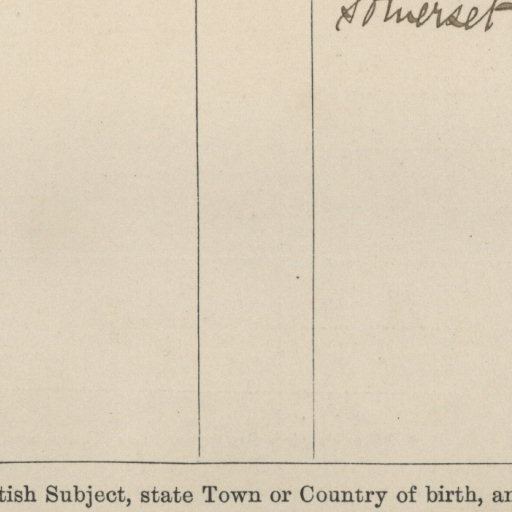 Somerset
tish Subject, state Town or Country of birth, an